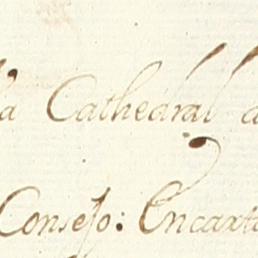 la Cathedral d
Consejo: Encarta